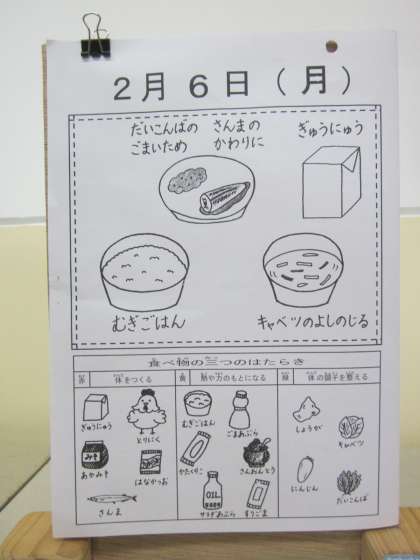 2月6日（月）
だいこんばの ごまいため
さんまの かわりに
ぎゅうにゅう
むぎごはん
キャベツのよしのじる
食べ物の三つのはたらき
赤 体をつくる
黄 熱や力のもとになる
緑 体の調子を整える
ぎゅうにゅう
とりにく
みそ
あかみそ
はなかつお
さんま
むぎごはん
ごまあぶら
かたくりこ
さんおんとう
OIL
サラダあぶら
すりごま
しょうが
キャベツ
にんじん
だいこんば